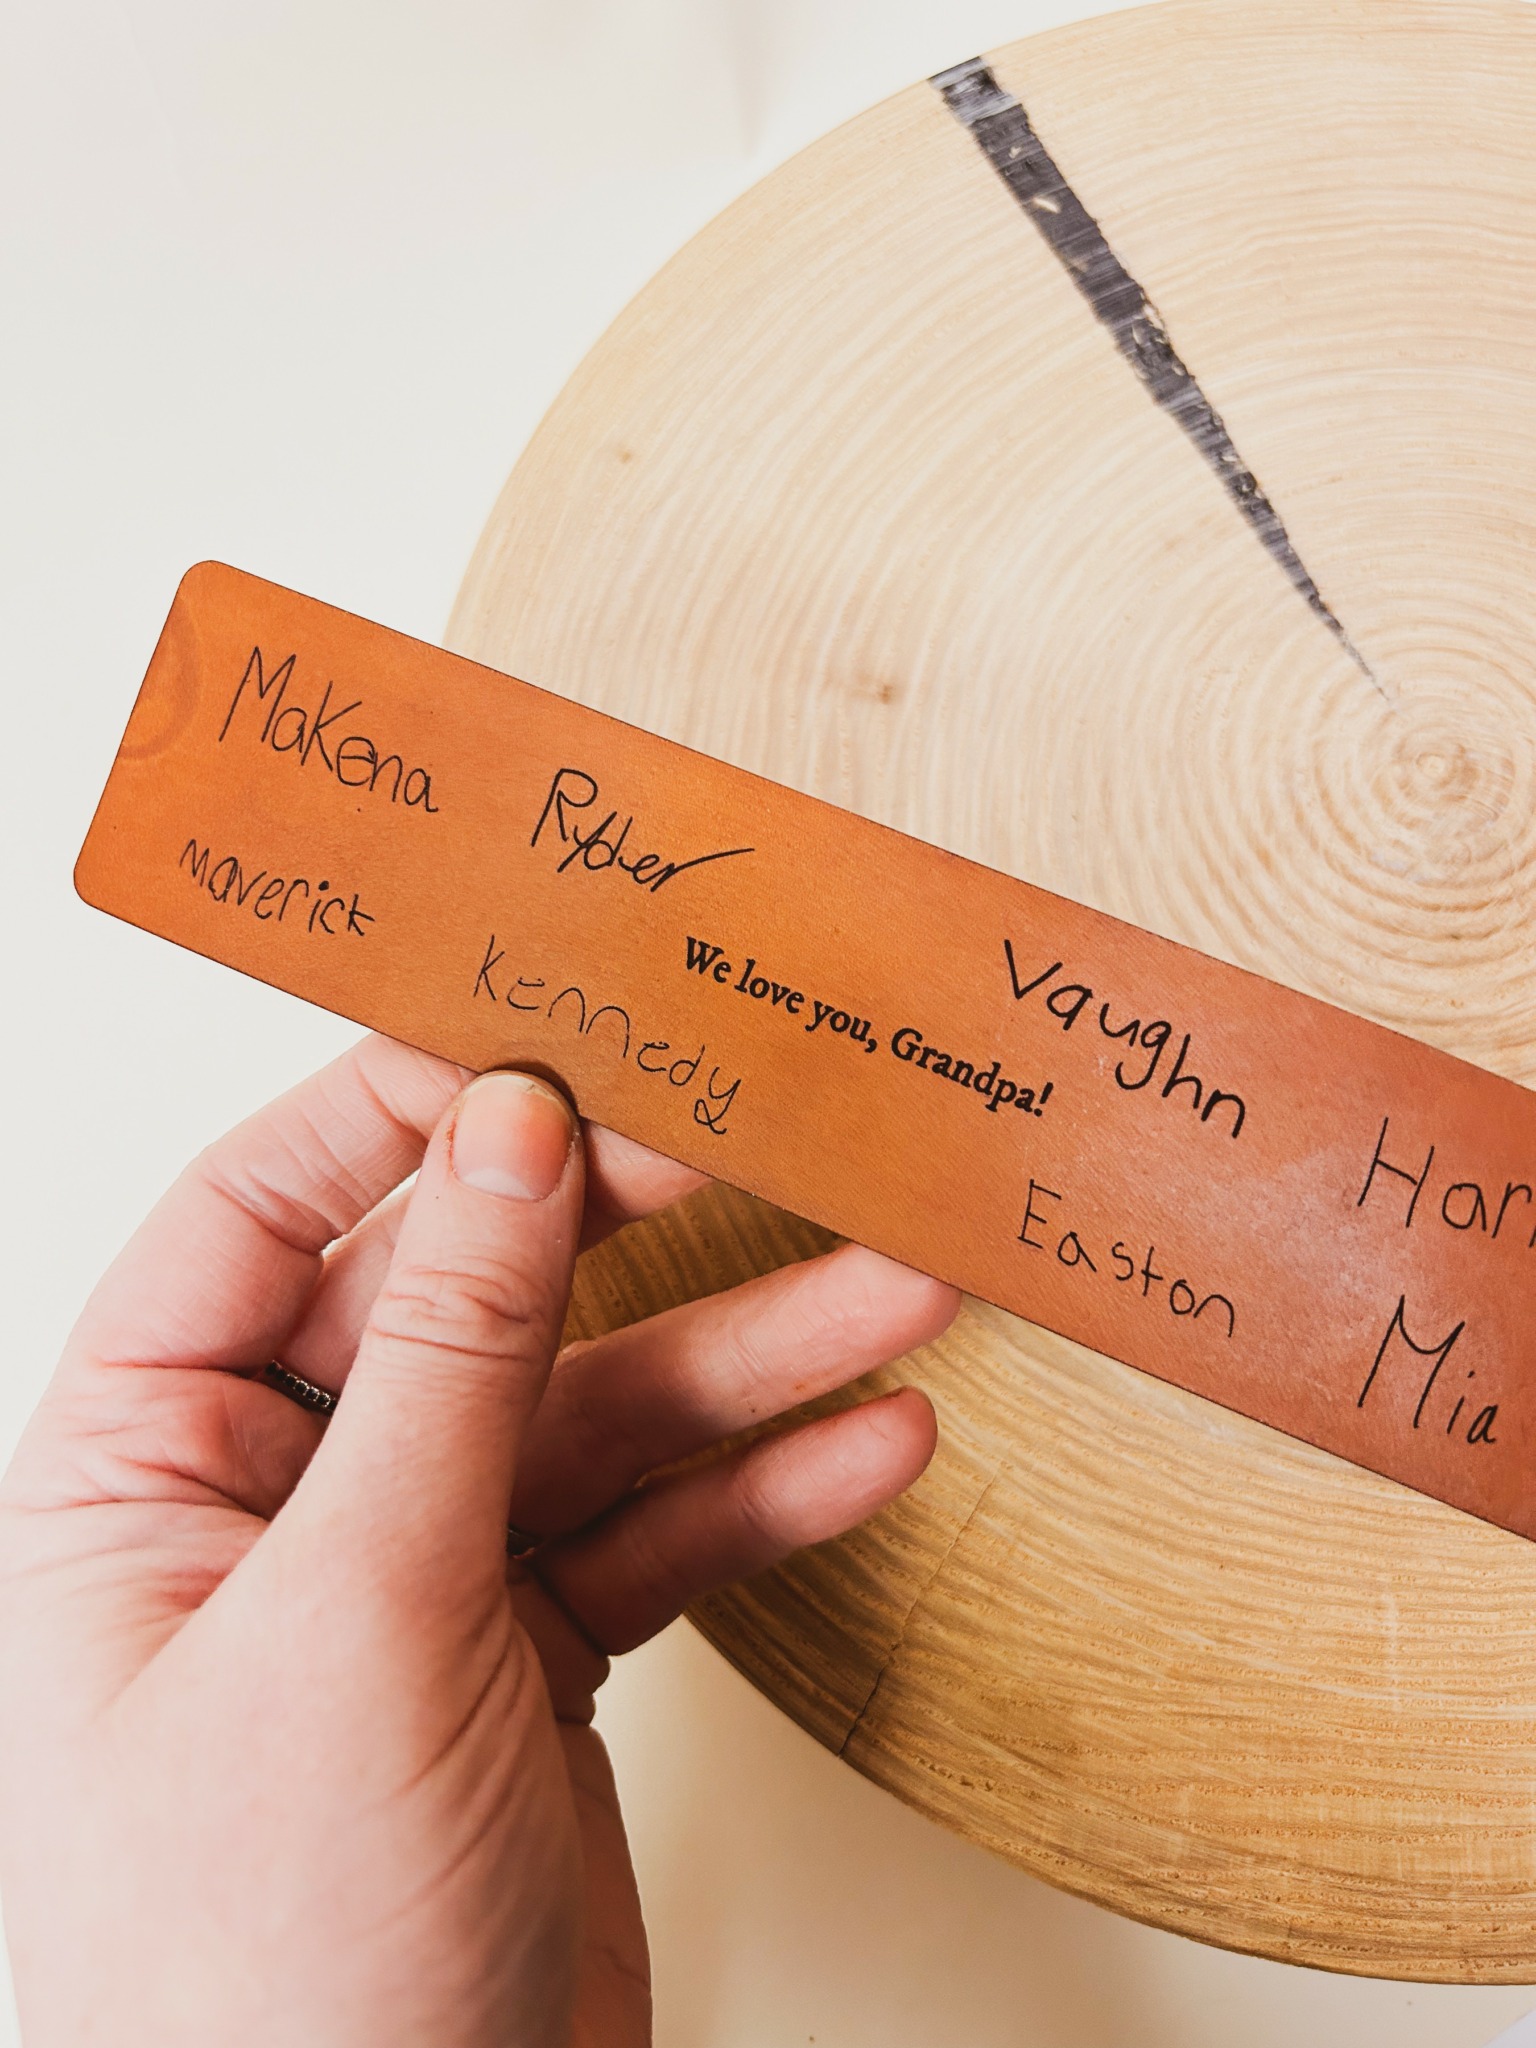 MaKena
Ryder
maverick
Kennedy
We love you, Grandpa!
Vaughn
Easton
Mia